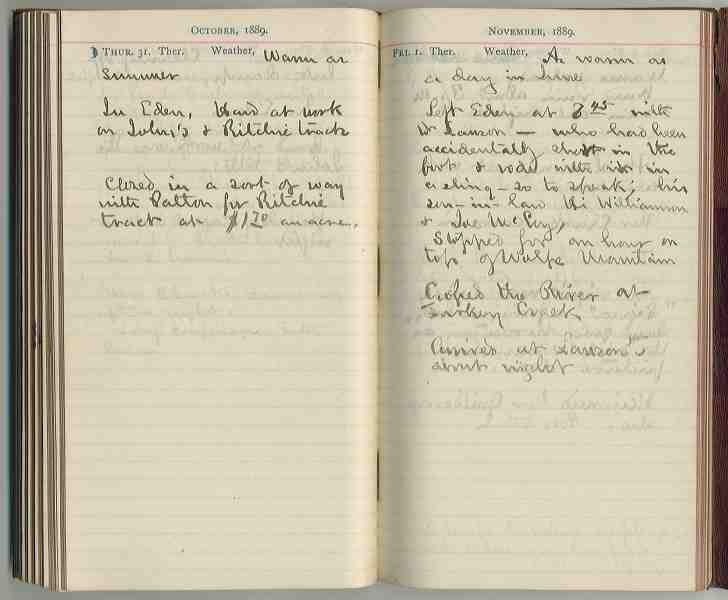 OCTOBER, 1889.
THUR. 31. Ther. Weather, Warm as
Summer
In Eden, Hard at work
on John's & Ritchie track
Closed in a sort of way
with Patton for Ritchie
track at $1 70 an acre.
NOVEMBER, 1889.
FRI. 1. Ther. Weather, As warm as
a day in June
Left Eden at 8 45 with
Dr Lawson — who had been
accidentally shot in the
foot & rode with it in
a sling — so to speak; his
son-in-law Williamson
& Joe McCoy,
Stopped for an hour on
top of Wolfe Mountain
Crossed the River at
Turkey Creek
Arrived at Lawson's just
about night